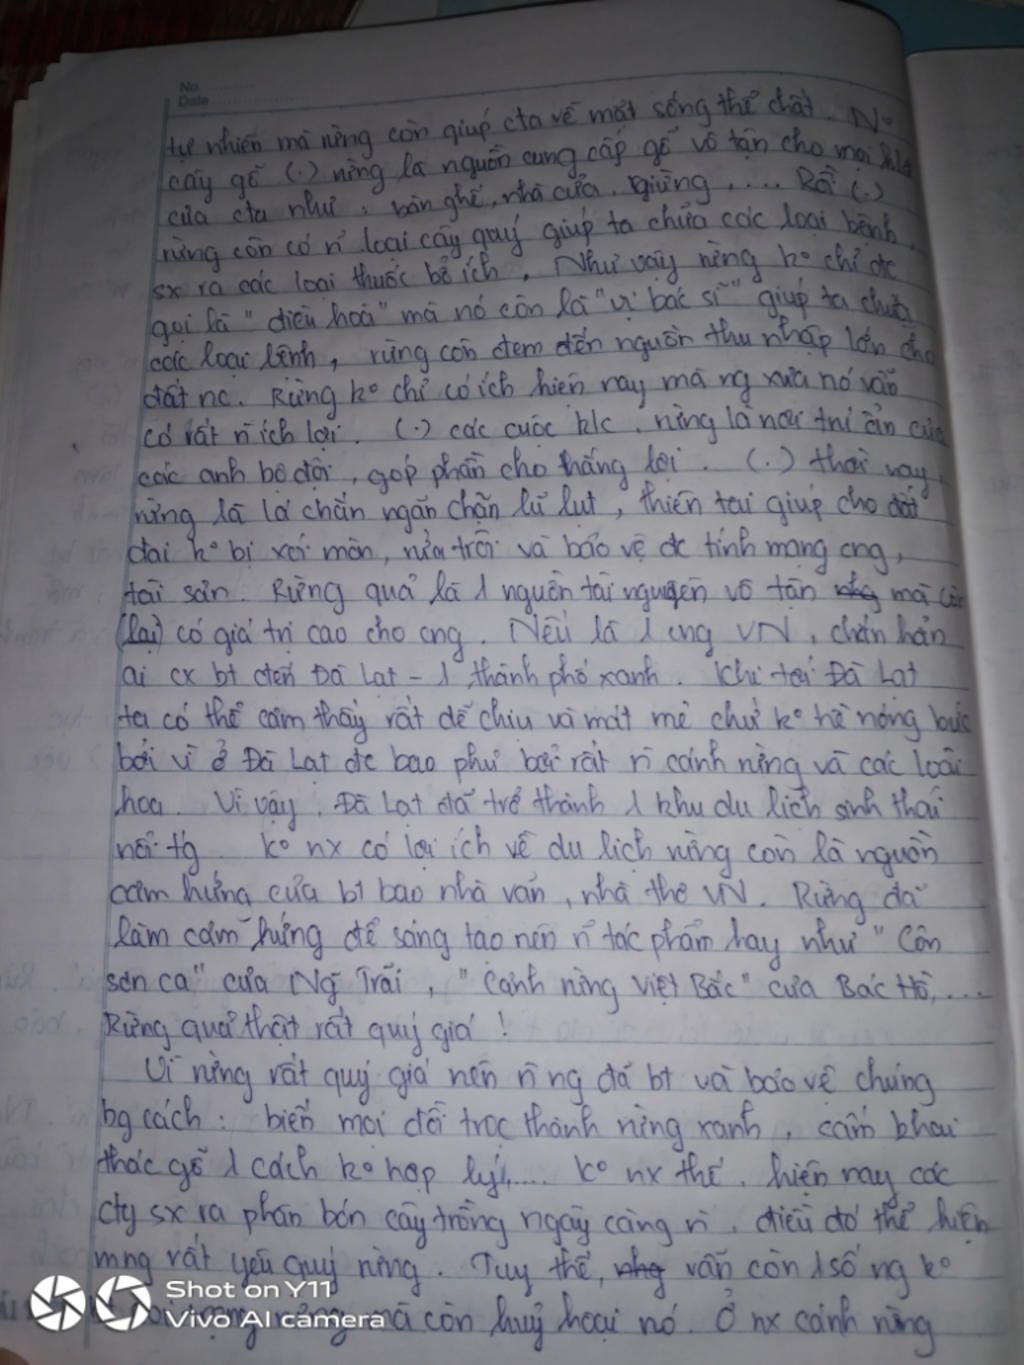 No.
Date
tự nhiên mà rừng còn giúp cta về mặt sống thể chất. Nº
cây gỗ (.) rừng là nguồn cung cấp gỗ vô tận cho mọi
của cta như: bàn ghế, nhà cửa, giường, .... Rồi (.)
rừng còn có n̄ loại cây quý giúp ta chữa các loại bệnh,
sx ra các loại thuốc bổ ích. Như vậy rừng kº chỉ đc
gọi là "điều hoà" mà nó còn là "vị bác sĩ" giúp ta chữa
các loại bệnh, rừng còn đem đến nguồn thu nhập lớn cho
đất nc. Rừng kº chỉ có ích hiện nay mà ng xưa nó vẫn
có rất n̄ ích lợi. (.) các cuộc k/c, rừng là nơi trú ẩn của
các anh bộ đội, góp phần cho thắng lợi. (.) thời nay,
rừng là lá chắn ngăn chặn lũ lụt, thiên tai giúp cho đất
đai kº bị xói mòn, rửa trôi và bảo vệ đc tính mạng cng,
tài sản. Rừng quả là 1 nguồn tài nguyên vô tận nhg mà còn
(lại) có giá trị cao cho cng. Nếu là 1 cng VN, chắn hẳn
ai cx bt đến Đà Lạt - 1 thành phố xanh. Khi tới Đà Lạt
ta có thể cảm thấy rất dễ chịu và mát mẻ chứ kº hề nóng bức
bởi vì ở Đà Lạt đc bao phủ bởi rất n̄ cánh rừng và các loài
hoa. Vì vậy, Đà Lạt đã trở thành 1 khu du lịch sinh thái
nổi tg. Kº nx có lợi ích về du lịch rừng còn là nguồn
cảm hứng của bt bao nhà văn, nhà thơ VN. Rừng đã
làm cảm hứng để sáng tạo nên n̄ tác phẩm hay như "Côn
sơn ca" của Ng̃ Trãi, "Cảnh rừng Việt Bắc" của Bác Hồ,...
Rừng quả thật rất quý giá!
Vì rừng rất quý giá nên n̄ ng đã bt và bảo vệ chúng
bg cách: biến mọi đồi trọc thành rừng xanh, cấm khai
thác gỗ 1 cách kº hợp lý,.... Kº nx thế, hiện nay các
cty sx ra phân bón cây trồng ngày càng n̄, điều đó thể hiện
mng rất yêu quý rừng. Tuy thế, nhg vẫn còn 1 số ng kº
rừng mà còn huỷ hoại nó. Ở nx cánh rừng
Shot on Y11
Vivo AI camera